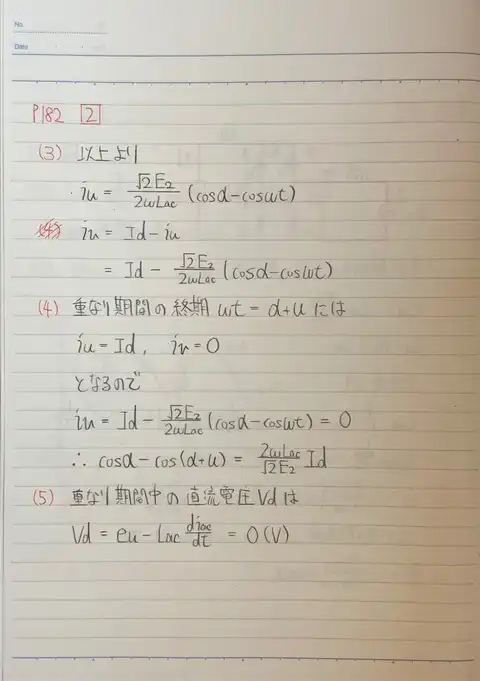 No.
Date
P182 [2]
(3) 以上より
iu = √2E₂/2ωLac (cosα-cosωt)
iv = Id-iu
= Id - √2E₂/2ωLac (cosα-cosωt)
(4) 重なり期間の終期 ωt = α+u には
iu = Id, iv = 0
となるので
iv = Id - √2E₂/2ωLac (cosα-cosωt) = 0
∴ cosα-cos(α+u) = 2ωLac/√2E₂ Id
(5) 重なり期間中の直流電圧Vdは
Vd = eu - Lac diac/dt = 0 (V)